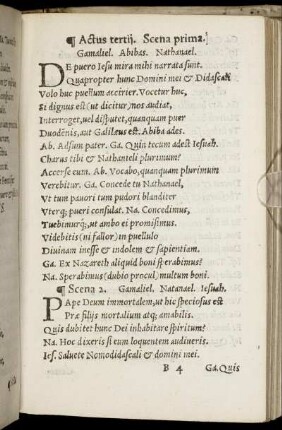 ¶ Actus tertij. Scena prima.
Gamaliel. Abibas. Nathanael.
DE puero Iesu mira mihi narrata sunt.
Quapropter hunc Domini mei & Didascali
Volo huc puellum accirier. Vocetur huc,
Et dignus est (ut dicitur) nos audiat,
Interroget, uel disputet, quanquam puer
Duodēnis, aut Galilæus est. Abiba ades.
Ab. Adsum pater. Ga. Quin tecum adest Iesuah.
Charus tibi & Nathanieli plurimum?
Accerse eum. Ab. Vocabo, quanquam plurimum
Verebitur. Ga. Concede tu Nathanael,
Vt tum pauori tum pudori blanditer
Vterq; pueri consulat. Na. Concedimus,
Tuebimurq;, ut ambo ei promisimus.
Videbitis (ni fallor) in puellulo
Diuinam inesse & indolem & sapientiam.
Ga. Ex Nazareth aliquid boni sperabimus?
Na. Sperabimus (dubio procul) multum boni.
¶ Scena 2. Gamaliel. Natanael. Iesuah.
PApe Deum immortalem, ut hic speciosus est
Præ filijs mortalium atq; amabilis.
Quis dubitet hunc Dei inhabitare spiritum?
Na. Hoc dixeris si eum loquentem audiueris.
Ies. Saluete Nomodidascali & domini mei.
B 4 Ga. Quis